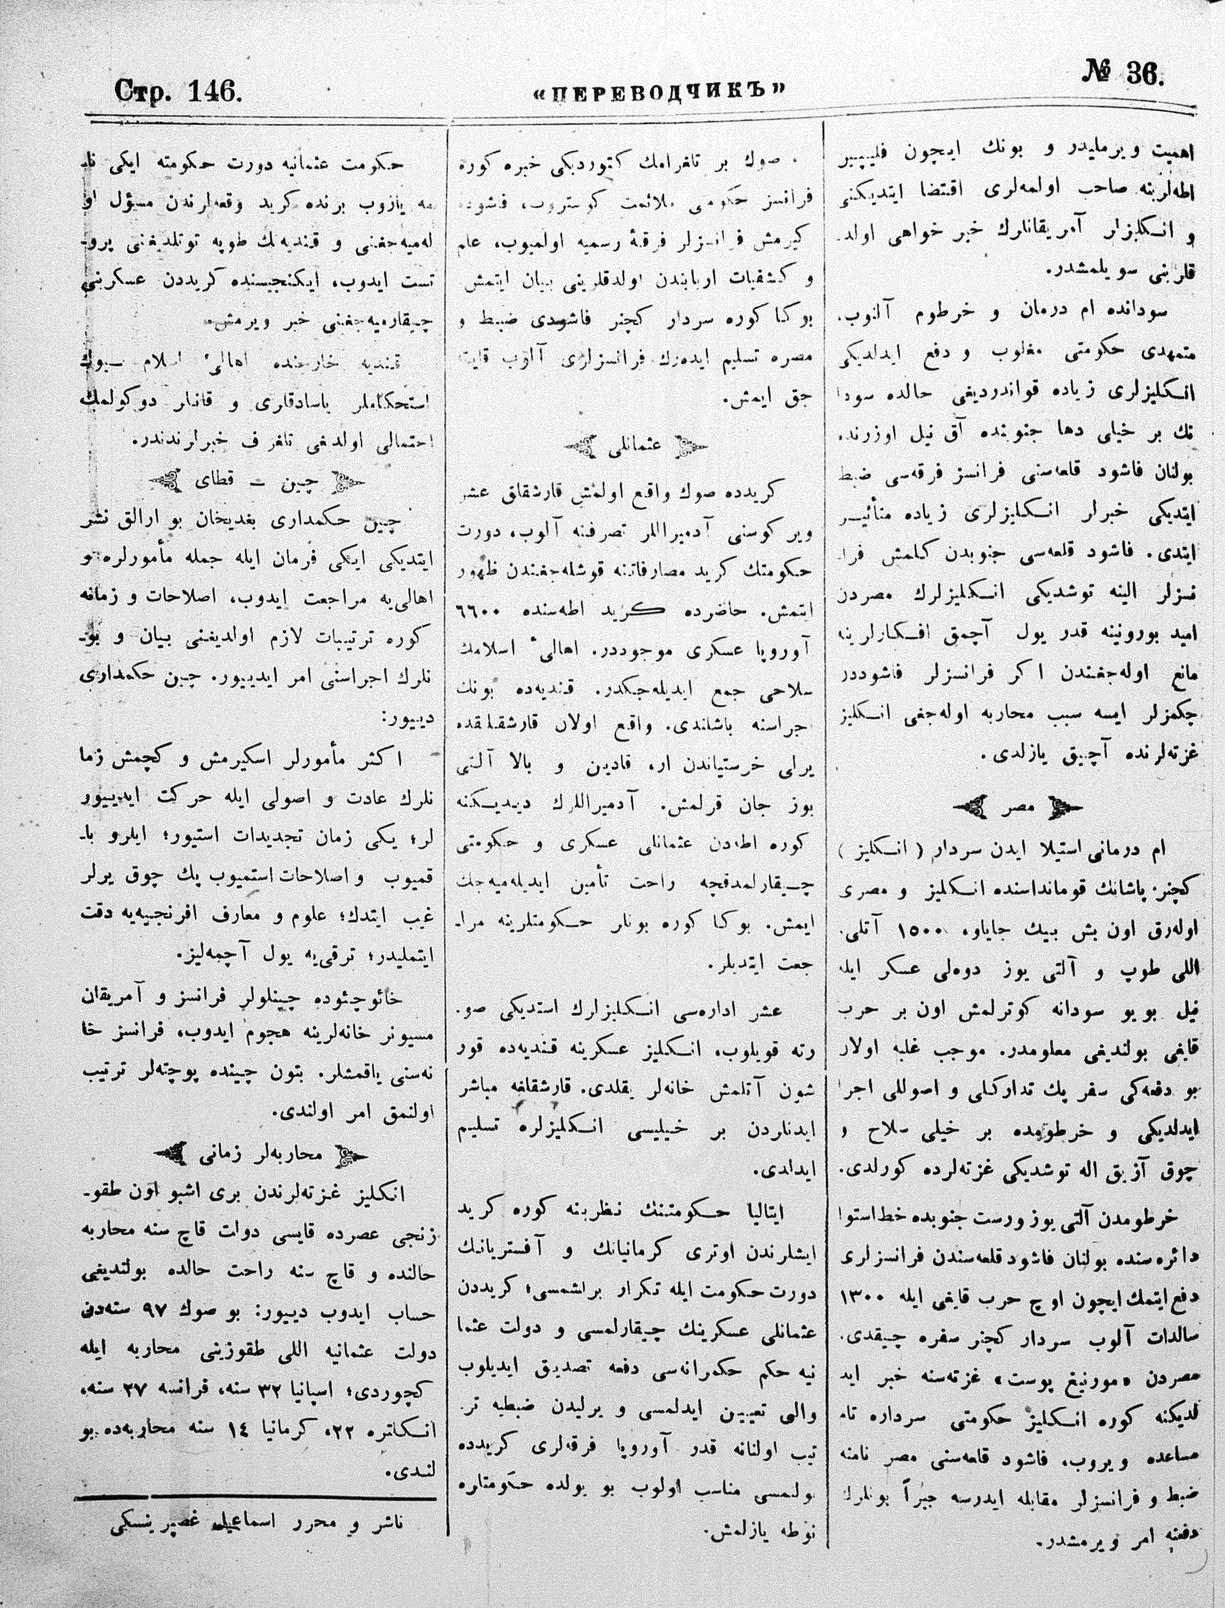 Стр. 146.
«ПЕРЕВОДЧИКЪ»
№ 36.
اهمیت ویرملیدر و بونك ایچون فلیپپیر
اطه‌لرینه صاحب اولمه‌لری اقتضا ایتدیكنی
و انكلیزلر آمریقانلرك خیر خواهی اولد
قلرینی سویلمشدر.
سوداندە ام درمان و خرطوم آلنوب،
متمهدی حكومتی مغلوب و دفع ایدلدیكی
انكلیزلری زیاده قواندردیغی حالده سودا
نك بر خیلی دها جنوبنده آق نیل اوزرنده
بولنان فاشود قلعه‌سنی فرانسز فرقه‌سی ضبط
ایتدیكی خبرلر انكلیزلری زیاده متأثیر
ایتدی. فاشود قلعه‌سی جنوبدن كلمش فرا
نسزلر الینه توشدیكی انكلیزلرك مصردن
امید بورونینه قدر یول آچمق افكارلرینه
مانع اوله‌جغندن اكر فرانسزلر فاشوددن
چكمزلر ایسه سبب محاربه اوله‌جغی انكلیز
غزته‌لرنده آچیق یازلدی.
مصر
ام درمانی استیلا ایدن سردار (انكلیز)
كچنر پاشانك قوماندا‌سنده انكلیز و مصری
اوله‌رق اون بش بیك جایاو، ١٥٠٠ آتلی.
اللی طوپ و آلتی یوز دوه‌لی عسكر ایله
نیل بویو سودانه كوترلمش اون بر حرب
قایغی بولندیغی معلومدر. موجب غلبه اولان
بو دفعه‌كی سفر پك تداركلی و اصوللی اجرا
ایدلدیكی و خرطومده بر خیلی سلاح و
چوق آزیق اله توشدیكی غزته‌لرده كورلدی.
خرطومدن آلتی یوز ورست جنوبده خط استوا
دائره‌سنده بولنان فاشود قلعه‌سندن فرانسزلری
دفع ایتمك ایچون اوچ حرب قایغی ایله ١٣٠٠
سالدات آلوب سردار كچنر سفره چیقدی.
مصردن «مورنیغ پوست» غزته‌سنه خبر اید
لدیكنه كوره انكلیز حكومتی سرداره تام
مساعده ویروب، فاشود قلعه‌سنی مصر نامنه
ضبط و فرانسزلر مقابله ایدرسه جبراً بونلرك
دفعنه امر ویرمشدر.
صوك بر تلغرامك كتوردیكی خبره كوره
فرانسز حكومتی ملائمت كوستروب، فاشوده
كیرمش فرانسزلر فرقهٔ رسمیه اولمیوب، علم
و كشفیات اربابندن اولدقلرینی بیان ایتمش.
بوكا كوره سردار كچنر فاشودی ضبط و
مصره تسلیم ایده‌رك فرانسزلری آلوب قایتا
جق ایمش.
عثمانلی
كریدده صوك واقع اولمش قارشقلق عشر
ویركوسنی آدمیراللر تصرفنه آلوب، دورت
حكومتك كرید مصارفاتنه قوشله‌جغندن ظهور
ایتمش. حاضرده كرید اطه‌سنده ٦٦٠٠
آوروپا عسكری موجوددر. اهالیٔ اسلامك
سلاحی جمع ایدیله‌جكدر. قندیه‌ده بونك
اجراسنه باشلندی. واقع اولان قارشقلقده
یرلی خرستیاندن ار، قادین و بالا آلتی
یوز جان قرلمش. آدمیراللرك دیدیكنه
كوره اطه‌دن عثمانلی عسكری و حكومتی
چیقارلمدقچه راحت تأمین ایدیله‌میه‌جك
ایمش. بوكا كوره بونلر حكومتلرینه مرا-
جعت ایتدیلر.
عشر اداره‌سی انكلیزلرك استدیكی صو-
رته قویلوب، انكلیز عسكرینه قندیه‌ده قور
شون آتلمش خانه‌لر یقلدی. قارشقلغه مباشر
ایدنلردن بر خیلیسی انكلیزلره تسلیم
ایدلدی.
ایتالیا حكومتنك نظرینه كوره كرید
ایشلرندن اوتری كرمانیانك و آفستریانك
دورت حكومت ایله تكرار براشمسی؛ كریددن
عثمانلی عسكرینك چیقارلمسی و دولت عثما
نیه حكم حكمرانه‌سی دفعه تصدیق ایدیلوب
والی تعیین ایدلمسی و یرلیدن ضبطیه تر-
تیب اولنانه قدر آوروپا فرقه‌لری كریدده
بولنمسی مناسب اولوب بو یولده حكومتلره
نوطه یازلمش.
حكومت عثمانیه دورت حكومته ایكی نا-
مه یازوب برنده كرید وقعه‌لرندن مسؤل او
له‌میه‌جغنی و قندیه‌نك طوپه توتلدیغنی پرو-
تست ایدوب، ایكنجیسنده كریددن عسكرینی
چیقارمیه‌جغنی خبر ویرمش.
قندیه خارجنده اهالیٔ اسلام بیوك
استحكاملر یاسادقلری و قانلر دوكولمك
احتمالی اولدغی تلغرف خبرلرندندر.
چین – قطای
چین حكمداری بغدیخان بو ارالق نشر
ایتدیكی ایكی فرمان ایله جمله مأمورلره و
اهالی‌یه مراجعت ایدوب، اصلاحات و زمانه
كوره ترتیبات لازم اولدیغنی بیان و بو-
نلرك اجراسنی امر ایدییور. چین حكمداری
دییور:
اكثر مأمورلر اسكیرمش و كچمش زما
نلرك عادت و اصولی ایله حركت ایدییور
لر؛ یكی زمان تجدیدات استیور؛ ایلرو با-
قمیوب و اصلاحات استمیوب پك چوق یرلر
غیب ایتدك؛ علوم و معارف افرنجیه‌یه دقت
ایتملیدر؛ ترقی‌یه یول آچمه‌لیز.
خائوچئوده چینلولر فرانسز و آمریقان
مسیونر خانه‌لرینه هجوم ایدوب، فرانسز خا
نه‌سنی یاقمشلر. بتون چینده پوچته‌لر ترتیب
اولنمق امر اولندی.
محاربه‌لر زمانی
انكلیز غزته‌لرندن بری اشبو اون طقو-
زنجی عصرده قایسی دولت قاچ سنه محاربه
حالنده و قاچ سنه راحت حالده بولندیغی
حساب ایدوب دییور: بو صوك ٩٧ سنه‌دن
دولت عثمانیه اللی طقوزینی محاربه ایله
كچوردی؛ اسپانیا ٣٢ سنه، فرانسه ٢٧ سنه،
انكلتره ٢٢، كرمانیا ١٤ سنه محاربه‌ده بو
لندی.
ناشر و محرر اسماعیل غصپرینسكی